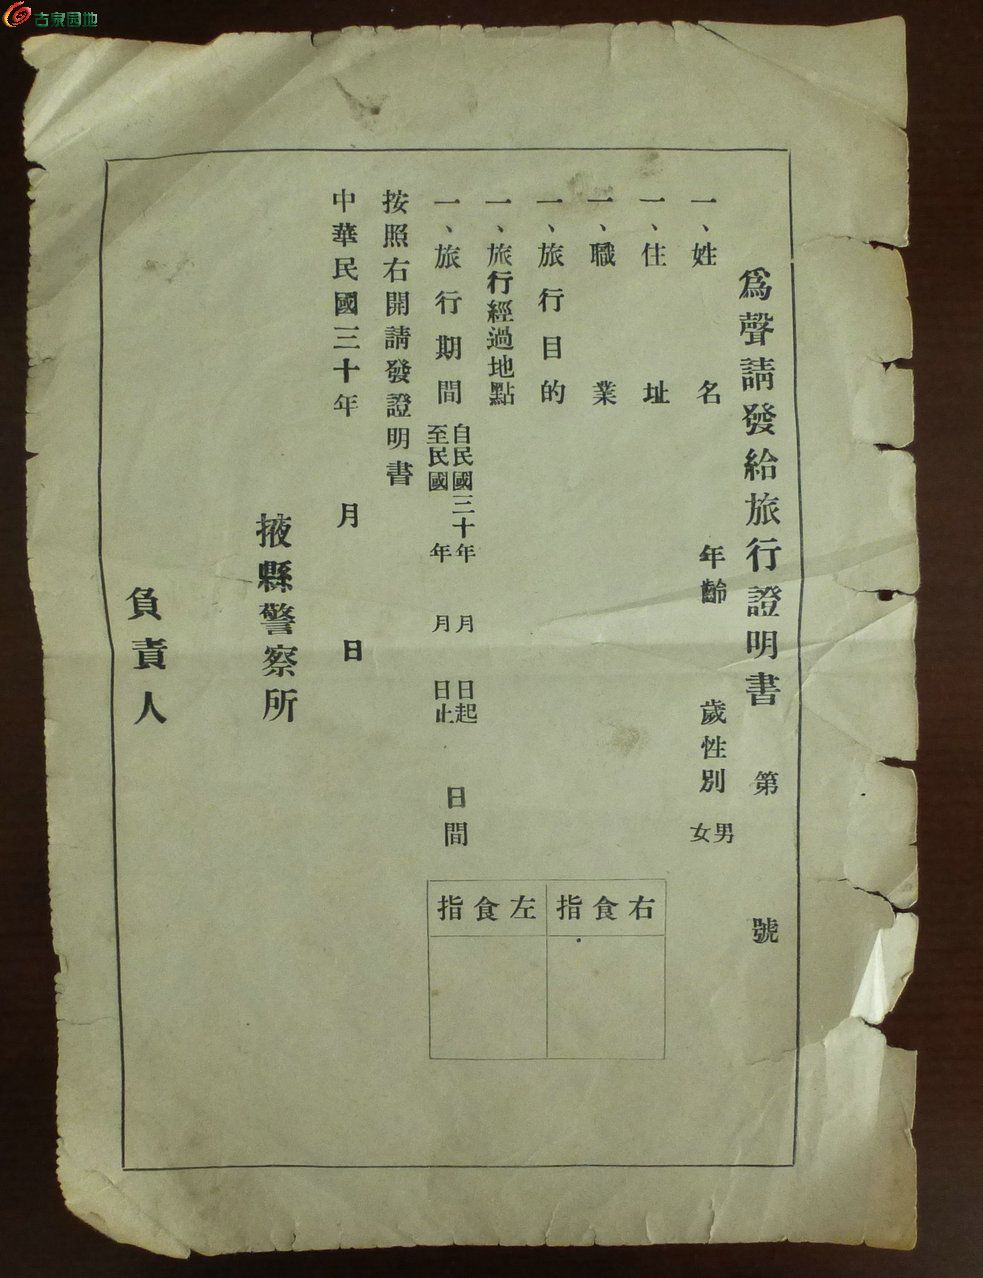 古泉园地
為聲請發給旅行證明書 第 號
一、姓 名 年齡 歲性別 男女
一、住 址
一、職 業
一、旅行目的
一、旅行經過地點
一、旅行期間 自民國三十年 月 日起
至民國 年 月 日止 日間
右食指 左食指
按照右開請發證明書
中華民國三十年 月 日
掖縣警察所
負責人